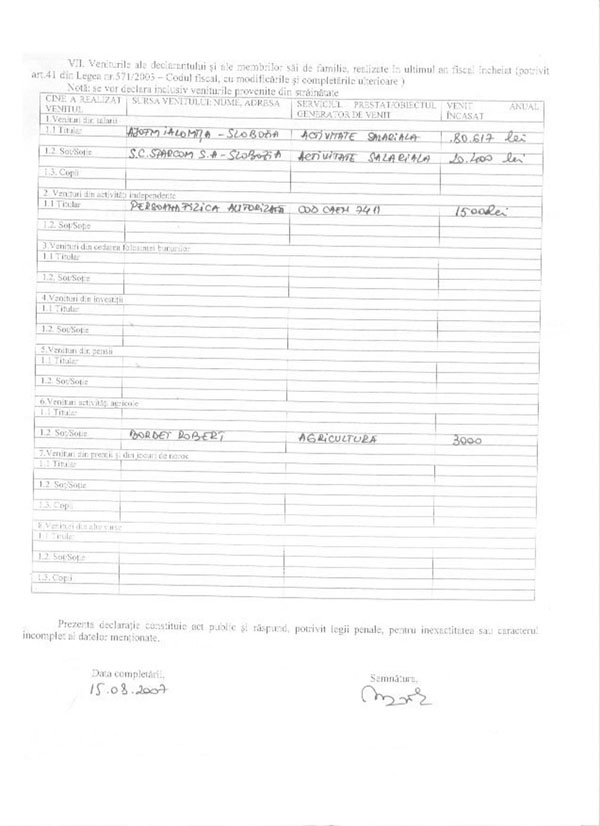 VII. Veniturile ale declarantului şi ale membrilor săi de familie, realizate în ultimul an fiscal încheiat (potrivit
art.41 din Legea nr.571/2003 – Codul fiscal, cu modificările şi completările ulterioare )
Notă: se vor declara inclusiv veniturile provenite din străinătate
CINE A REALIZAT VENITUL SURSA VENITULUI: NUME, ADRESA SERVICIUL PRESTAT/OBIECTUL GENERATOR DE VENIT VENIT ANUAL ÎNCASAT
1.Venituri din salarii
1.1 Titular AJOFM IALOMIȚA - SLOBOZIA ACTIVITATE SALARIALA 80.617 lei
1.2. Soţ/Soţie S.C. SPARCOM S.A - SLOBOZIA ACTIVITATE SALARIALA 20.400 lei
1.3. Copii
2. Venituri din activităţi independente
1.1 Titular PERSOANA FIZICA AUTORIZATA COD CAEN 7411 1500 lei
1.2. Soţ/Soţie
3.Venituri din cedarea folosinţei bunurilor
1.1 Titular
1.2. Soţ/Soţie
4.Venituri din investiţii
1.1 Titular
1.2. Soţ/Soţie
5.Venituri din pensii
1.1 Titular
1.2. Soţ/Soţie
6.Venituri activităţi agricole
1.1 Titular
1.2. Soţ/Soţie BORDET ROBERT AGRICULTURA 3000
7.Venituri din premii şi din jocuri de noroc
1.1 Titular
1.2. Soţ/Soţie
1.3. Copii
8.Venituri din alte surse
1.1 Titular
1.2. Soţ/Soţie
1.3. Copii
Prezenta declaraţie constituie act public şi răspund, potrivit legii penale, pentru inexactitatea sau caracterul
incomplet al datelor menţionate.
Data completării, Semnătura,
15.03.2007